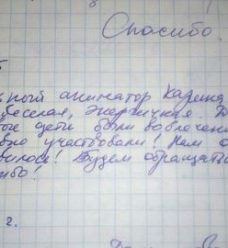 Спасибо.
ный аниматор Карина
веселая, энергичная. Д
ые дети были вовлечен
вно участвовали! Нам о
вилось! Будем обращать
ибо!
г.